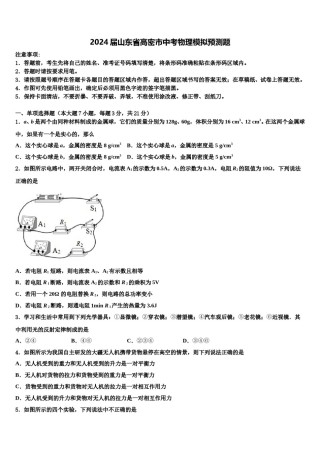 2024 届山东省高密市中考物理模拟预测题
注意事项:
1.答题前,考生先将自己的姓名、准考证号码填写清楚,将条形码准确粘贴在条形码区域内。
2.答题时请按要求用笔。
3.请按照题号顺序在答题卡各题目的答题区域内作答,超出答题区域书写的答案无效;在草稿纸、试卷上答题无效。
4.作图可先使用铅笔画出,确定后必须用黑色字迹的签字笔描黑。
5.保持卡面清洁,不要折暴、不要弄破、弄皱,不准使用涂改液、修正带、刮纸刀。
一、单项选择题(本大题 7 小题,每题 3 分,共 21 分)
1.a、b 是两个由同种材料制成的金属球,它们的质量分别为 128g、60g,体积分别为 16 cm³、12 cm³.在这两个金属球
中,如果有一个是实心的,那么
A.这个实心球是 a,金属的密度是 8 g/cm³ B.这个实心球是 a,金属的密度是 5 g/cm³
C.这个实心球是 b,金属的密度是 8 g/cm³ D.这个实心球是 b,金属的密度是 5 g/cm³
2.如图所示电路中,两开关闭合时,电流表 A₁ 的示数为 0.5A,A₂ 的示数为 0.3A,电阻 R₂ 的阻值为 10Ω,下列说法
正确的是
S₁
A₁
R₁
S₂
A₂
R₂
A.若电阻 R₁ 短路,则电流表 A₁、A₂ 有示数且相等
B.若电阻 R₂ 断路,则电流表 A₂ 的示数和 R₂ 的乘积为 5V
C.若用一个 20Ω 的电阻替换 R₁,则电路的总功率变小
D.若电阻 R₂ 断路,则通电 1min R₁ 产生的热量为 3J
3.学习和生活中常用到下列光学器具:①显微镜;②投影仪;③潜望镜;④汽车观后镜;⑤老花镜;⑥近视镜,其
中利用光的反射定律制成的是
A.②④ B.④⑤ C.③④ D.⑤⑥
4.如图所示为我国自主研发的大疆无人机携带货物悬停在高空的情景,则下列说法正确的是
A.无人机受到的重力和无人机对货物的拉力是一对相互作用力
B.无人机对货物的拉力和货物受到的重力是一对相互作用力
C.无人机受到的重力和无人机的升力是一对平衡力
D.无人机对货物的拉力和货物受到的重力是一对平衡力
5.如图所示的四个实验,下列说法中不正确的是